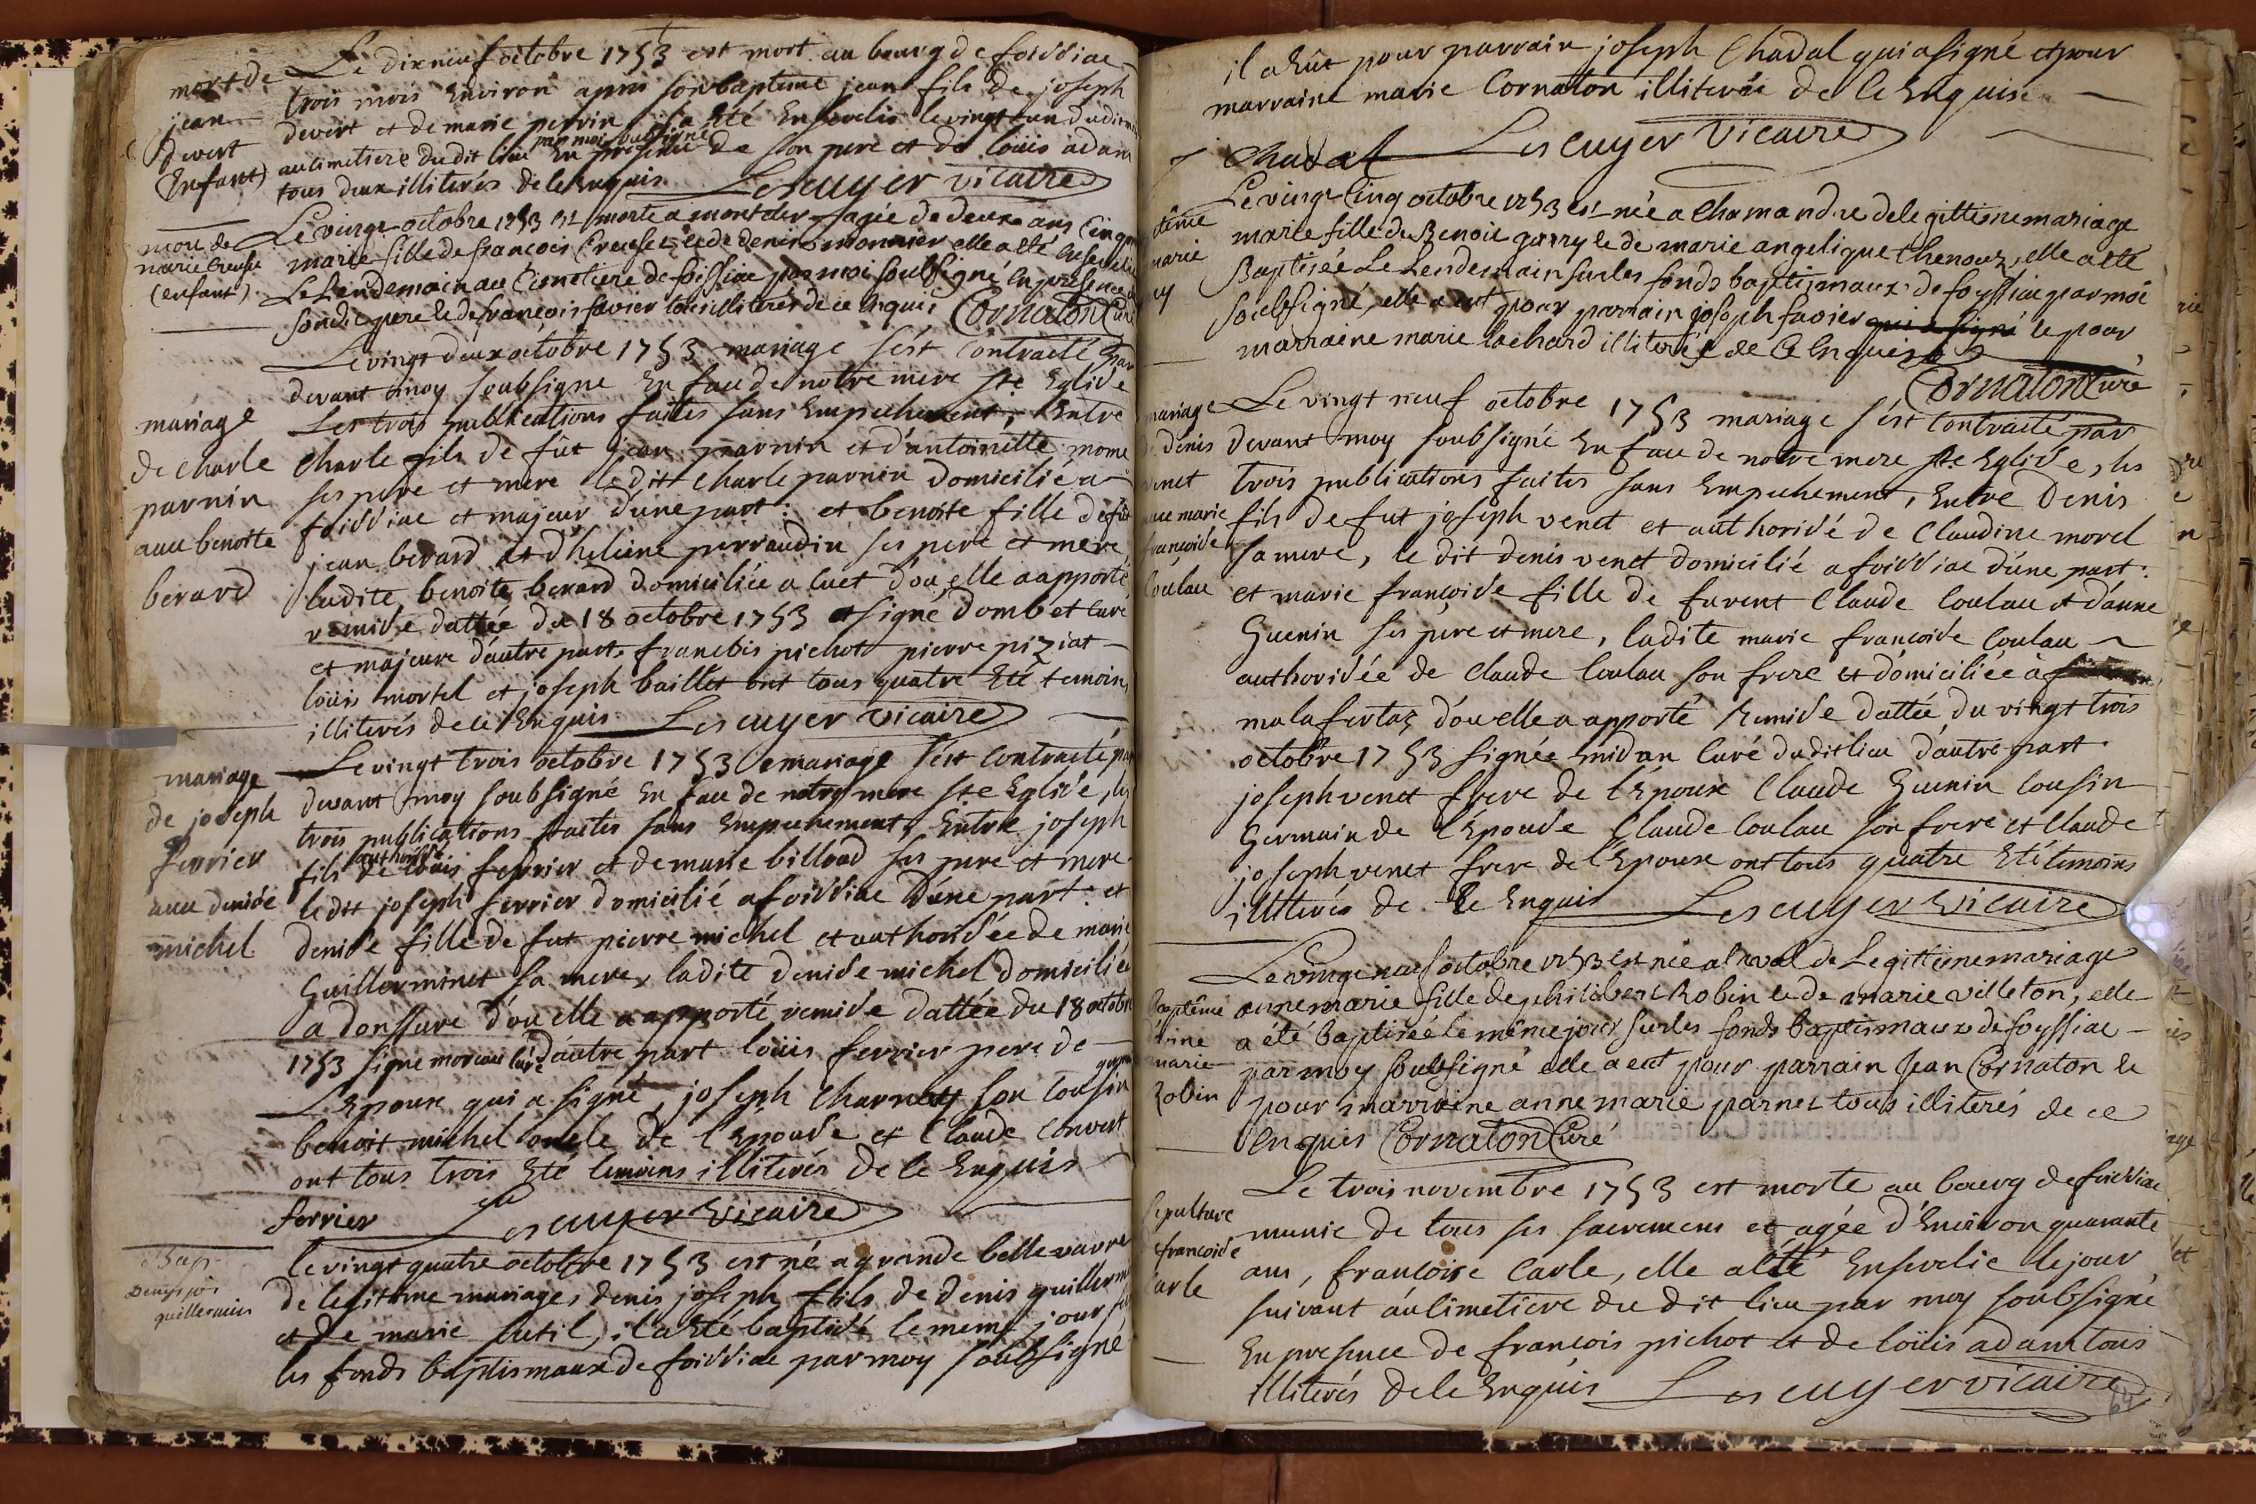 mort de
jean
devert
(Enfant)
Le dix neuf octobre 1753 est mort au bourg de foissiac
trois mois Environ apres son baptême jean fils de joseph
devert et de marie perrin il a Eté Ensevelis le vingt un dudit
au cimetiere du dit lieu par moi soubsigné En presence de son pere et de loüis adam
tous deux illiterés de ce Enquis Lescuyer vicaire
mort de
marie Creuse
(enfant)
Le vingt octobre 1753 est morte a montcler agée de deux ans Cinq
marie fille de francois Creuse et de denise monnier elle a été Ensevelie
Le Lendemain au Cimetiere de foissiac par moi soubsigné En presence
son dit pere et de françois favier tous illiterés de ce Enquis Cornaton Curé
mariage
de charle
parnin
avec benoite
berard
Le vingt deux octobre 1753 mariage s'est Contracté par
devant moy soubsigné En face de notre mere Ste Eglise
Les trois publications faites sans Empechement, Entre
Charle fils de fût jean parnin et d'antoinette mome
ses pere et mere le dit Charle parnin domicilié a
foissiac et majeur d'une part: et benoite fille de fût
jean berard et d'heleine perraudin ses pere et mere,
ladite benoite berard domiciliée a Cuet d'ou elle a apporté
remise dattée du 18 octobre 1753 et signé dombet Curé
et majeure d'autre part, francois pichot pierre piziat
loüis mortel et joseph baillet ont tous quatre Eté temoins
illiterés de ce Enquis Lescuyer vicaire
mariage
de joseph
ferrier
avec denise
michel
Le vingt trois octobre 1753 mariage s'est Contracté par
devant moy soubsigné En face de notre mere Ste Eglise, les
trois publications faites sans Empechement, Entre joseph
fils authorisé de loüis ferrier et de marie billoud ses pere et mere
le dit joseph ferrier domicilié a foissiac d'une part: et
denise fille de fut pierre michel et authorisée de marie
Guillerminet sa mere, ladite denise michel domiciliée
a donssure d'ou elle a apporté remise dattée du 18 octobre
1753 signé moreau Curé d'autre part loüis ferrier pere de
L'Epoux qui a signé, joseph Charnay son Cousin
benoit michel oncle de l'Epouse et Claude Convert
ont tous trois Eté temoins illiterés de ce Enquis
ferrier Lescuyer vicaire
Bap.
Denys jos.
guillermin
le vingt quatre octobre 1753 est né a grande bellevavre
de legitime mariage, denis joseph fils de denis guillermin
et de marie Sutil, il a Eté baptisé le meme jour
les fonds baptismaux de foissiac par moy soubsigné
il a Eüt pour parrain joseph Chadal qui a signé et pour
marraine marie Cornaton illiterée de ce Enquise
Chadal Lescuyer vicaire
Le vingt Cinq octobre 1753 est née a Chamandre de legittime mariage
marie fille de Benoit gurry et de marie angelique thenoux, elle a été
Baptisée Le Lendemain sur les fonds baptismaux de foyssiac par moi
soubsigné, elle a eut pour parrain joseph favier qui a signé et pour
marraine marie lachard illiterés de ce Enquis
Cornaton Curé
mariage
de denis
venet
avec marie
françoise
Coulau
Le vingt neuf octobre 1753 mariage s'est Contracté par
devant moy soubsigné En face de notre mere Ste Eglise, les
trois publications faites sans Empechement, Entre denis
fils de fut joseph venet et authorisé de Claudine morel
sa mere, le dit denis venet domicilié a foissiac d'une part:
et marie françoise fille de furent Claude Coulau et d'anne
Guenin ses pere et mere, ladite marie françoise Coulau
authorisée de Claude Coulau son frere et domiciliée à
malafertaz d'ou elle a apporté Remise dattée du vingt trois
octobre 1753 signée midan Curé dudit lieu d'autre part.
joseph venet frere de l'Epoux Claude Guenin Cousin
Germain de l'Epouse Claude Coulau son frere et Claude
joseph venet frere de l'Epoux ont tous quatre Eté temoins
illiterés de Ce Enquis Lescuyer vicaire
Baptême
anne
marie
Robin
Le vingt neuf octobre 1753 est née a leval de Legittime mariage
anne marie fille de philibert Robin et de marie villeton, elle
a été Baptisée le même jour sur les fonds baptismaux de foyssiac
par moy soubsigné elle a eut pour parrain Jean Cornaton et
pour marraine anne marie parnet tous illiterés de ce
enquis Cornaton Curé
sepulture
françoise
Carle
Le trois novembre 1753 est morte au bourg de foissiac
munie de tous ses sacremens et agée d'Environ quarante
ans, françoise Carle, elle a été Ensevelie le jour
suivant au Cimetiere du dit lieu par moy soubsigné
En presence de françois pichot et de loüis adam tous
illiterés de ce Enquis Lescuyer vicaire
64